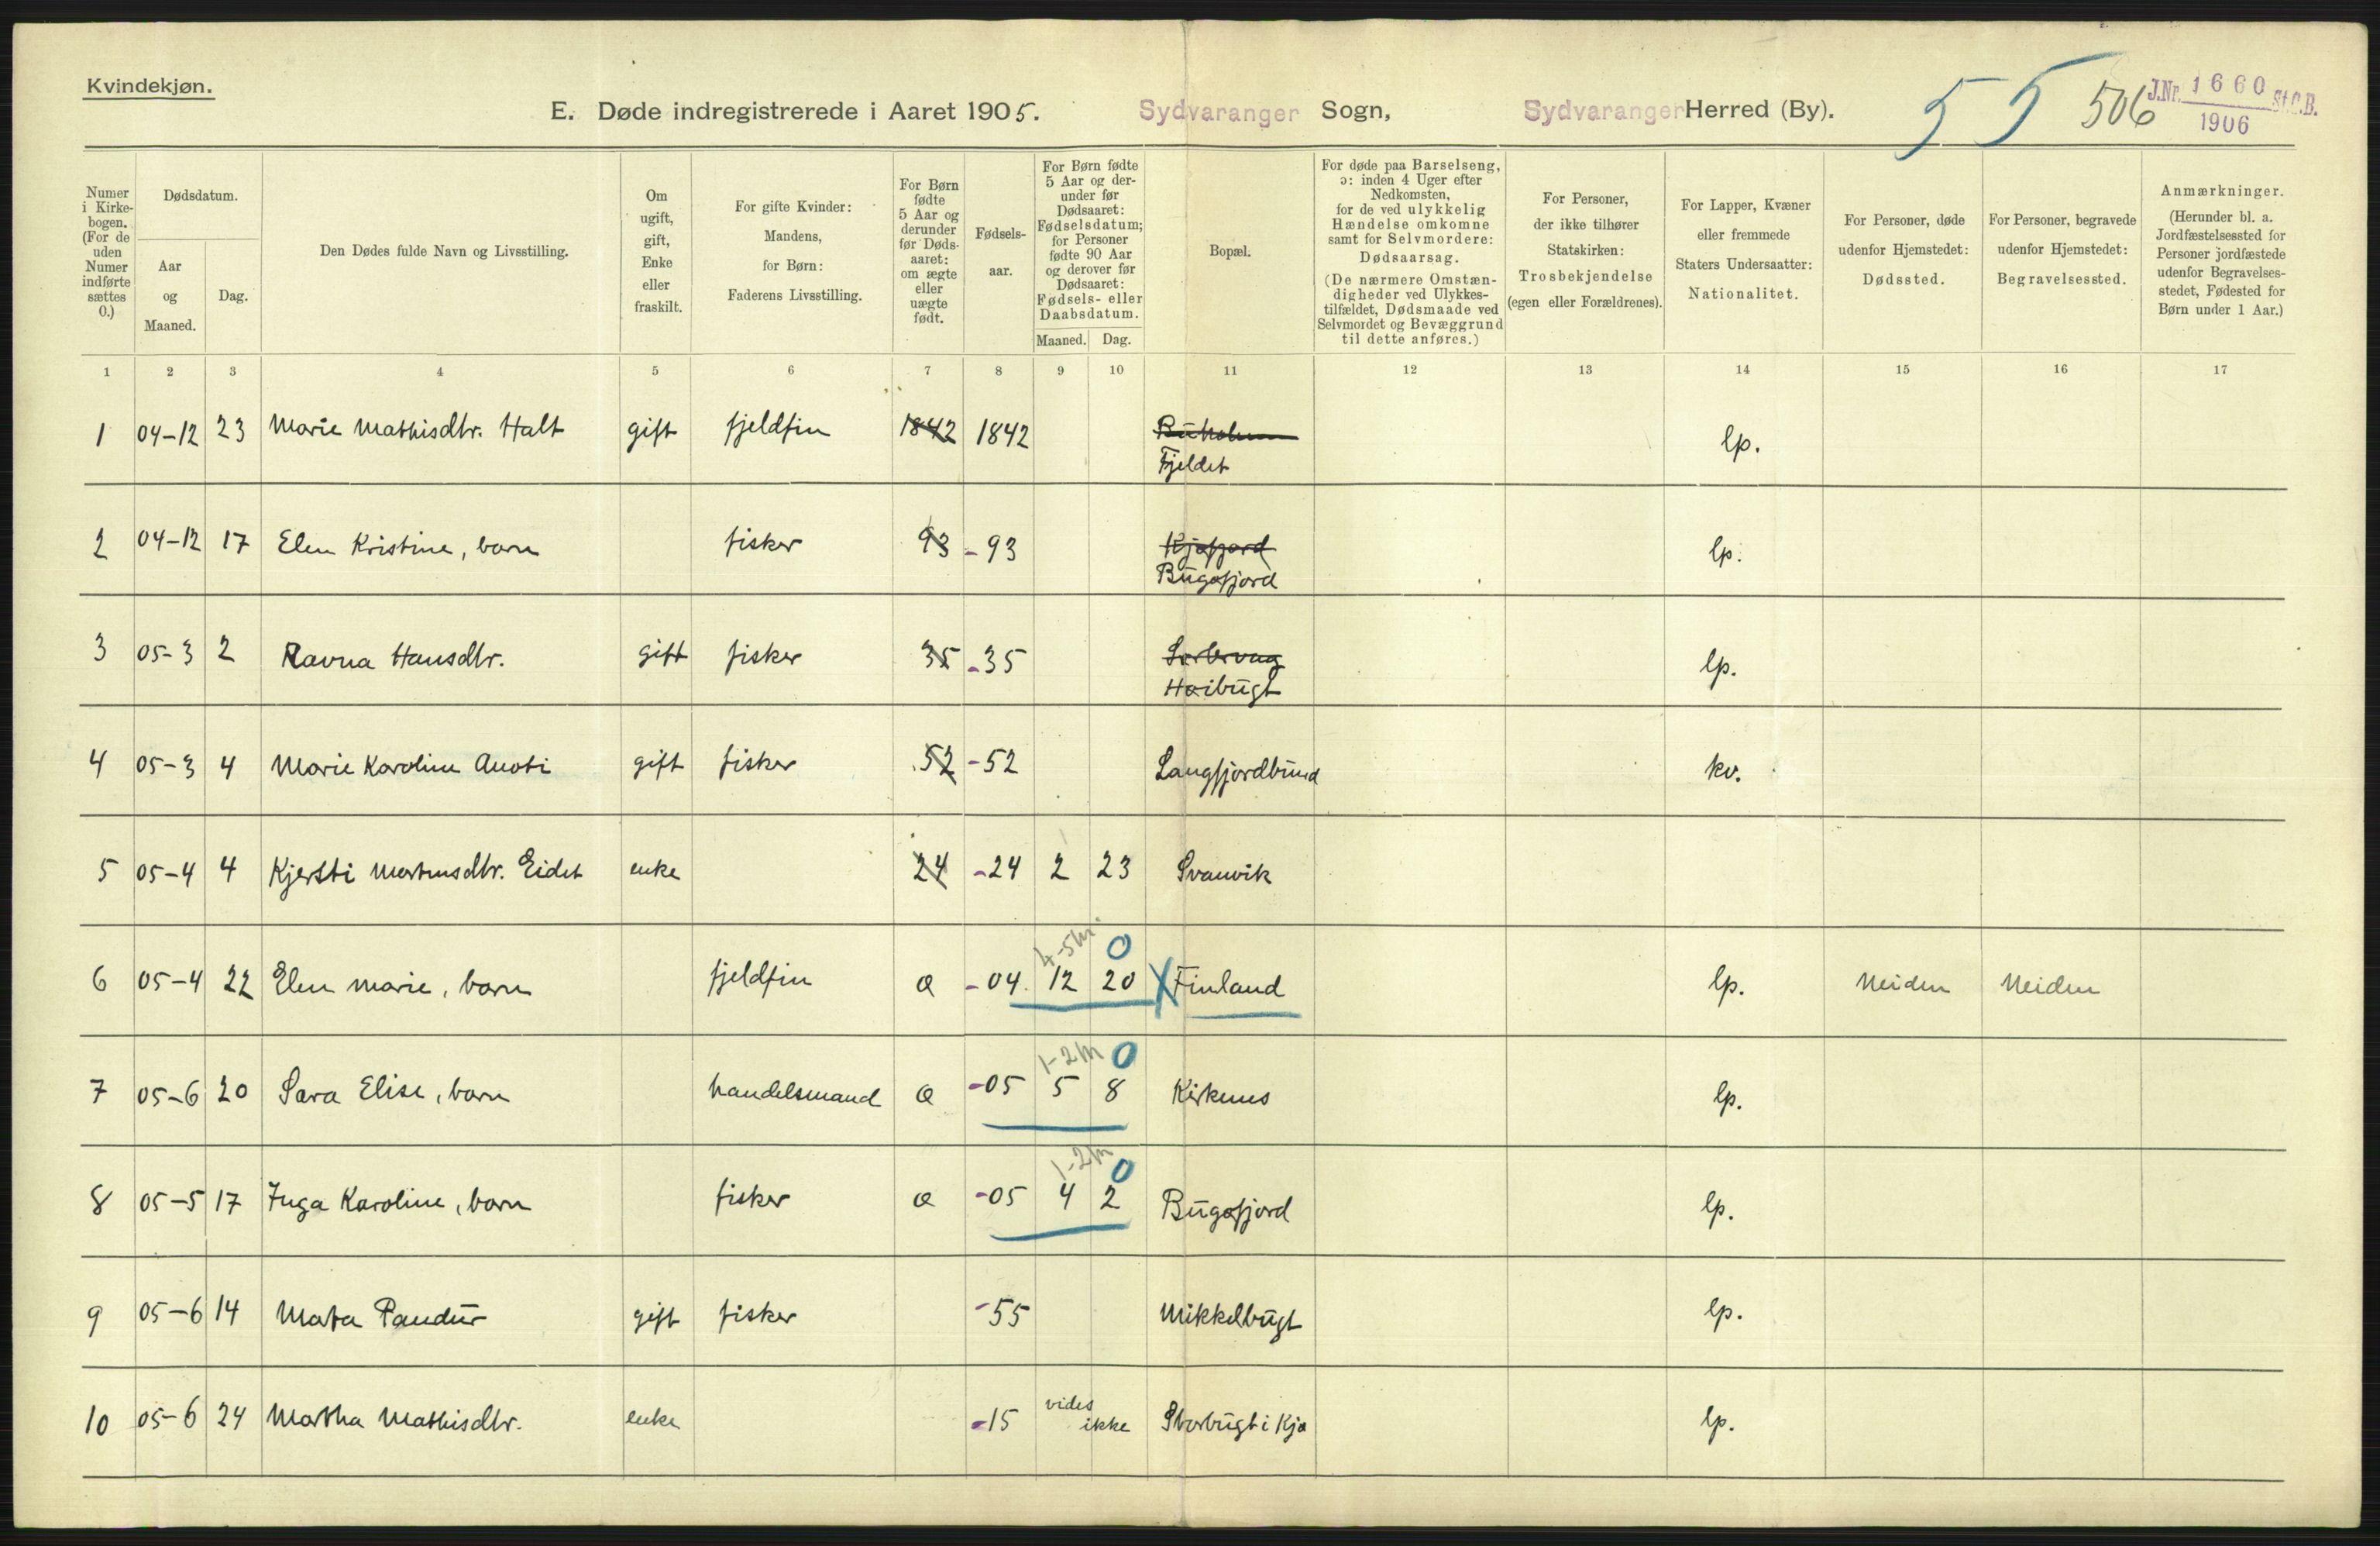 Kvindekjøn.
E. Døde indregistrerede i Aaret 1905. Sydvaranger Sogn, Sydvaranger Herred (By).
5 5 506
J.Nr. 1660 St.C.B.
1906
Numer i Kirkebogen. (For de uden Numer indførte sættes 0.)
Dødsdatum.
Aar og Maaned.
Dag.
Den Dødes fulde Navn og Livsstilling.
Om ugift, gift, Enke eller fraskilt.
For gifte Kvinder: Mandens, for Børn: Faderens Livsstilling.
For Børn fødte 5 Aar og derunder før Dødsaaret: om ægte eller uægte født.
Fødselsaar.
For Børn fødte 5 Aar og derunder før Dødsaaret: Fødselsdatum; for Personer fødte 90 Aar og derover før Dødsaaret: Fødsels- eller Daabsdatum.
Maaned. Dag.
Bopæl.
For døde paa Barselseng, ɔ: inden 4 Uger efter Nedkomsten, for de ved ulykkelig Hændelse omkomne samt for Selvmordere: Dødsaarsag. (De nærmere Omstændigheder ved Ulykkestilfældet, Dødsmaade ved Selvmordet og Bevæggrund til dette anføres.)
For Personer, der ikke tilhører Statskirken: Trosbekjendelse (egen eller Forældrenes).
For Lapper, Kvæner eller fremmede Staters Undersaatter: Nationalitet.
For Personer, døde udenfor Hjemstedet: Dødssted.
For Personer, begravede udenfor Hjemstedet: Begravelsessted.
Anmærkninger. (Herunder bl. a. Jordfæstelsessted for Personer jordfæstede udenfor Begravelsesstedet, Fødested for Børn under 1 Aar.)
1 2 3 4 5 6 7 8 9 10 11 12 13 14 15 16 17
1 04-12 23 Marie Mathisdtr. Halt gift fjeldfin 1842 1842 Fjeldet lp.
2 04-12 17 Elen Kristine, barn fisker 93 -93 Kjøfjord Bugøfjord lp.
3 05-3 2 Ravna Hansdtr. gift fisker 35 -35 Høibugt lp.
4 05-3 4 Marie Karoline Anoti gift fisker 52 -52 Langfjordbund kv.
5 05-4 4 Kjersti Mortensdtr. Eidet enke 24 -24 2 23 Svanvik
4-5m 0
6 05-4 22 Elen Marie, barn fjeldfin Æ -04. 12 20 X Finland lp. Neiden Neiden
1-2m 0
7 05-6 20 Sara Elise, barn handelsmand Æ -05 5 8 Kirkenes lp.
1-2m 0
8 05-5 17 Inga Karoline, barn fisker Æ -05 4 2 Bugøfjord lp.
9 05-6 14 Mata Pandur gift fisker -55 Mikkelbugt lp.
10 05-6 24 Martha Mathisdtr. enke -15 vides ikke Storbugt i Kjø lp.